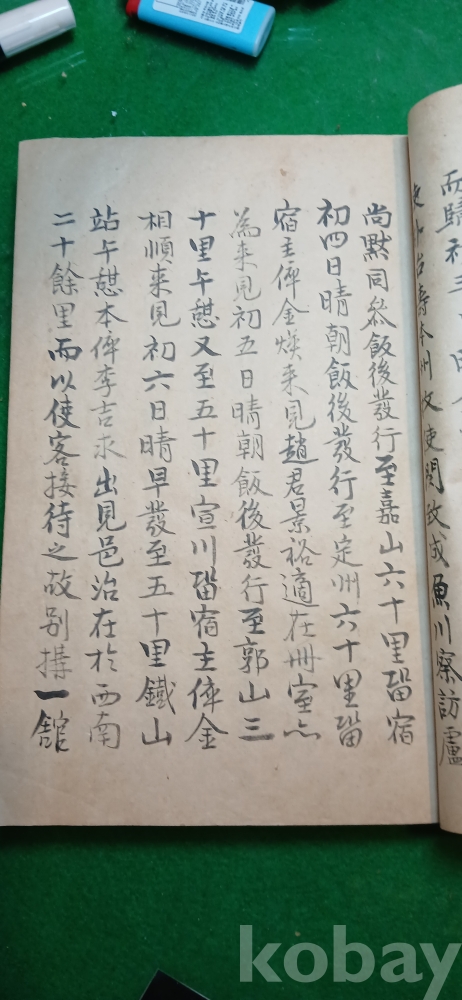 而歸初三日
本州牧使閔致成魚川察訪盧
尚黙同叅飯後發行至嘉山六十里留宿
初四日晴朝飯後發行至定州六十里留
宿主倅金煐来見趙君景裕適在冊室亦
為来見初五日晴朝飯後發行至郭山三
十里午憇又至五十里宣川留宿主倅金
相順来見初六日晴早發至五十里鐵山
站午憇本倅李吉求出見邑治在於西南
二十餘里而以使客接待之故别搆一舘
kobay